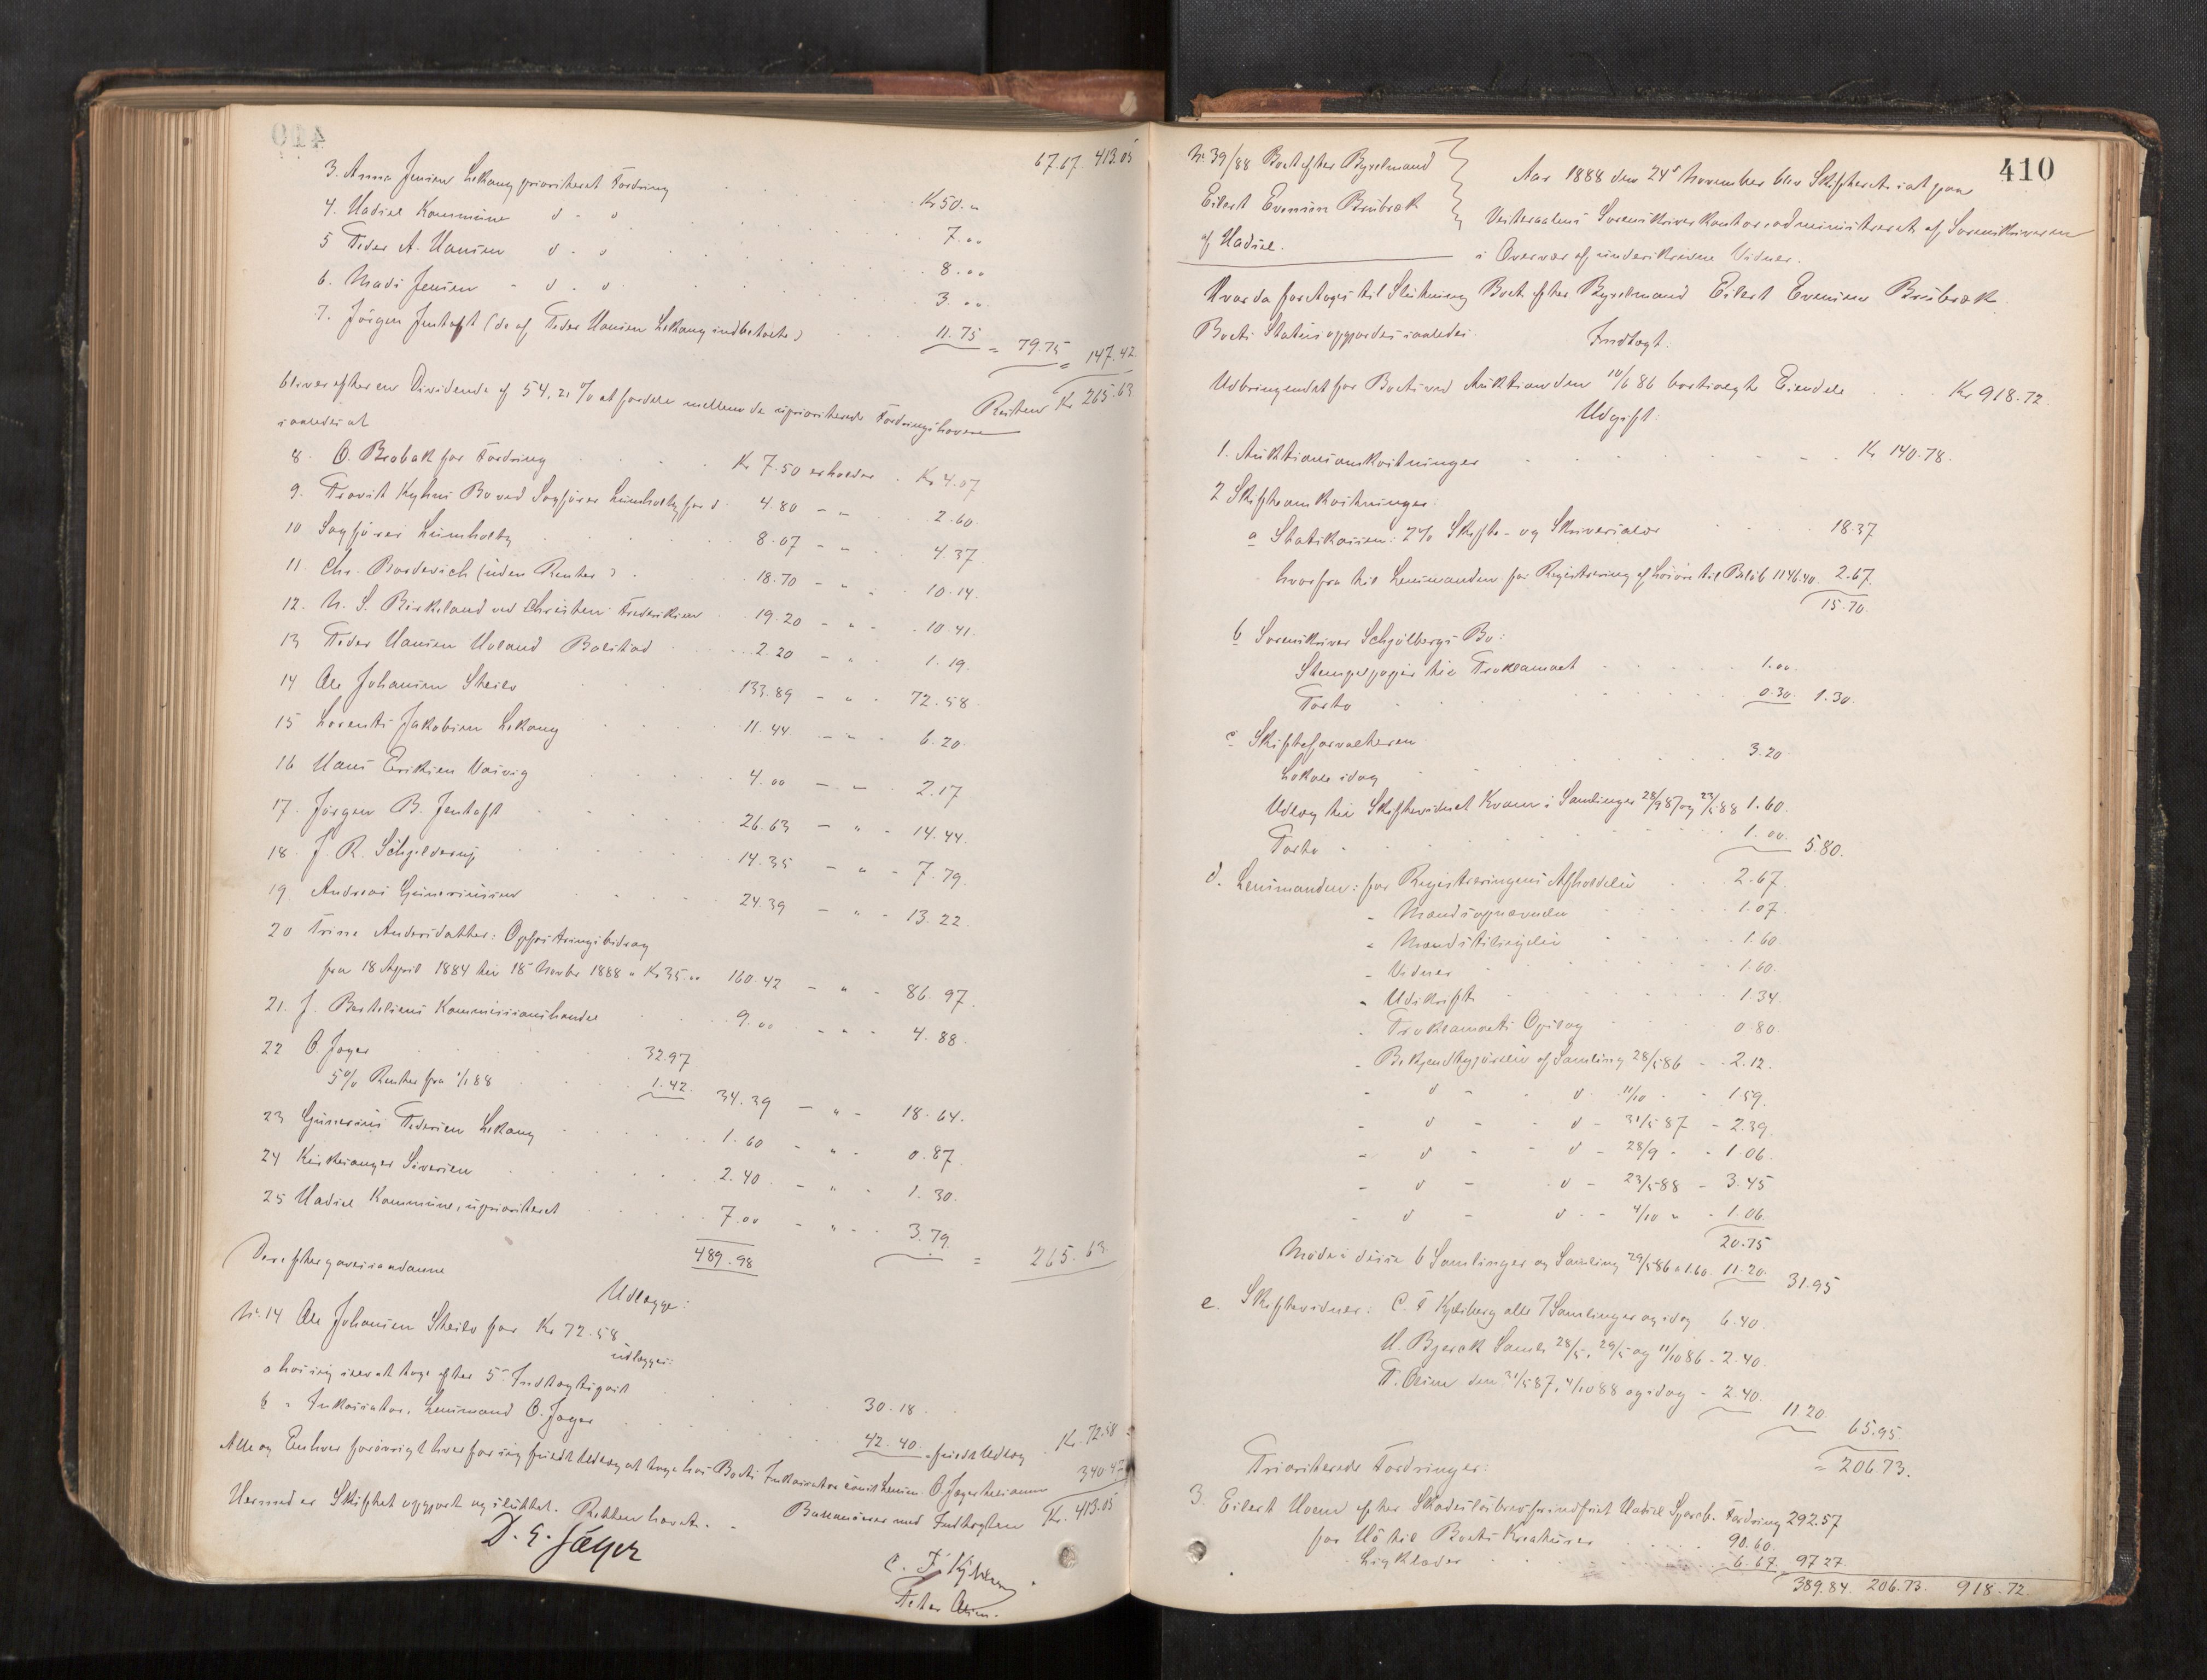 67.67. 413.05
3. Anna Jensen Lekang prioriteret Fordring Kr 50."
4. Hadsel Kommune d - o 7.00
5 Peder A. Hansen d - o 8.00
6. Mads Jensen - d - o 3.00
7. Jörgen Jentoft (de af Peder Hansen Lekang indbetalte) 11.75 = 79.75 = 147.42
Resten Kr 265.63
bliver efter en Dividende af 54,21 % at fordele mellem de uprioriterede Fordringshavere
saaledes at
8. O. Brobak for Fordring Kr 7.50 erholder Kr 4.07
9. Provst Kyhns Bo ved Sagförer Lumholtz for d. 4.80 - " 2.60
10 Sagförer Lumholtz 8.07 - " 4.37
11. Chr. Borderich (uden Renter) 18.70 - " - 10.14.
12. N. S. Birkeland ved Christen Frederiksen 19.20 - " - 10.41.
13 Peder Hansen Holand Bolstad 2.20 - " 1.19.
14 Ole Johansen Skeilo 133.89 - " - 72.58
15 Lorents Jakobsen Lekang 11.44 - " - 6.20
16 Hans Eriksen Vasvig 4.00 - " - 2.17
17. Jörgen B. Jentoft 26.63 - " - 14.44.
18. J. R. Schjelderup 14.35 - " - 7.79.
19. Andreas Gunnerussen 24.39 - " - 13.22.
20 Trine Andersdatter: Opfostringsbidrag
fra 18 April 1884 til 18 Novbr 1888 a Kr 35.00 160.42 - " - 86.97.
21. J. Bertelsens Kommissionshandel 9.00 - " - 4.88.
22 O. Jager 32.97
5% Renter fra 1/1 88 1.42 34.39 - " - 18.64.
23 Gunnerius Pedersen Lekang 1.60 - " - 0.87
24 Kirkesanger Siversen 2.40 - " - 1.30.
25 Hadsel Kommune, uprioriteret 7.00 - " - 3.79.
489.98 = 265.63
Derefter gaves saadanne
Udlægge:
No 14 Ole Johansen Skeilo for Kr 72.58
udlægges:
a hos sig selv at tage efter 5 Indtægtspost 30.18
b " Inkassator, Lensmand O. Jager 42.40 fuldt Udlæg Kr. 72.58
Alle og Enhver forövrigt hver for sig fuldt Udlæg at tage hos Boets Inkassator Lensm. O. Jager tilsammen 340.47
Balancerer med Indtægten Kr. 413.05
Hermed er Skiftet opgjort og sluttet. Retten hævet.
D. E. Jæger
C. F. Kjelberg
Peter Olsen.
410
No 39/88 Boet efter Bygselmand
Eilert Evensen Brubæk
af Hadsel.
Aar 1888 den 24de November blev Skifteret sat paa
Vesteraalens Sorenskriverkontor, administreret af Sorenskriveren
i Overvær af underskrevne Vidner.
Hvorda foretoges til Slutning Boet efter Bygselmand Eilert Evensen Brubæk
Boets Status opgjordes saaledes
Indtægt:
Udbringendet for Boets ved Auktion den 10/6 86 bortsolgte Eiendele Kr 918.72
Udgift:
1. Auktionsomkostninger Kr 140.78.
2 Skifteomkostninger:
a Statskassen: 2% Skifte- og Skriversalær 18.37
hvorfra til Lensmanden for Registrering af Lösöre til Belöb 1146.40 2.67.
15.70.
b Sorenskriver Schjölbergs Bo:
Stempelpapir til Proklamaet 1.00
Porto 0.30. 1.30.
c Skifteforvalteren
Lokale idag 3.20
Udlæg til Skiftevidnet Kvam i Samlinger 28/9 87 og 23/5 88 1.60.
Porto 1.00. 5.80.
d. Lensmanden: for Registreringens Afholdelse 2.67.
- Mændsopnævnelse 1.07.
- Mændstilsigelse 1.60.
- Vidner 1.60.
- Udskrift 1.34.
- Proklamaets Opslag 0.80.
- Bekjendtgjörelse af Samling 28/5 86 - 2.12.
- d - - d 11/10 - 1.59.
- d - - d - 31/5 87 - 2.39.
- d - - d - 28/9 - - 1.06.
- d - d - 23/5 88 - 3.45
- d - d - 4/10 " - 1.06.
20.75
Möde i disse 6 Samlinger og Samling 29/5 86 a 1.60. 11.20. 31.95
e. Skiftevidner: C. F. Kjelberg alle 7 Samlinger og idag 6.40.
H. Bjerck Saml. 28/5, 29/5 og 11/10 86 - 2.40.
P. Olsen den 31/5 87, 4/10 88 og idag - 2.40. 11.20. 65.95
= 206.73.
Prioriterede Fordringer:
3. Eilert Hoem efter Skadeslösbrev for indfriet Hadsel Spareb. Fordring 292.57
for Hö til Boets Kreaturer 90.60.
- Ligklæder 6.67 97 27
389.84. 206.73. 918.72.